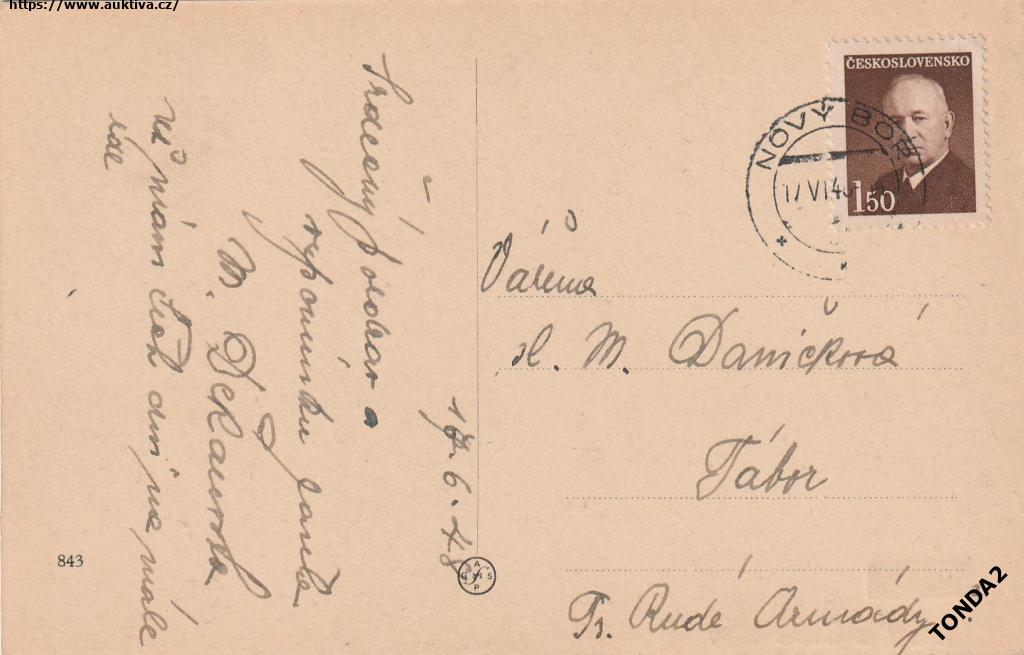 https://www.auktiva.cz/
ČESKOSLOVENSKO
NOVÝ BOR
17 VI 48
1 50
Srdečný pozdrav a
vzpomínku zasílá
M. Děkanovská
Už mám třetí den jen málé
17.6.48
Vážená
sl. M. Daníčková
Tábor
Tř. Rudé Armády
843
TONDA2